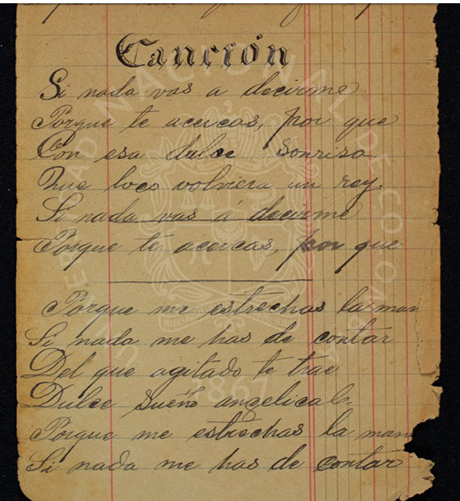 Canción
Si nada vas a decirme
Porque te acercas, por que
Con esa dulce sonrisa
Que loco volviera un rey
Si nada vas á decirme
Porque te acercas, por que
Porque me estrechas la man
Si nada me has de contar
Del que agitado te trae
Dulce sueño angelical
Porque me estrechas la man
Si nada me has de contar